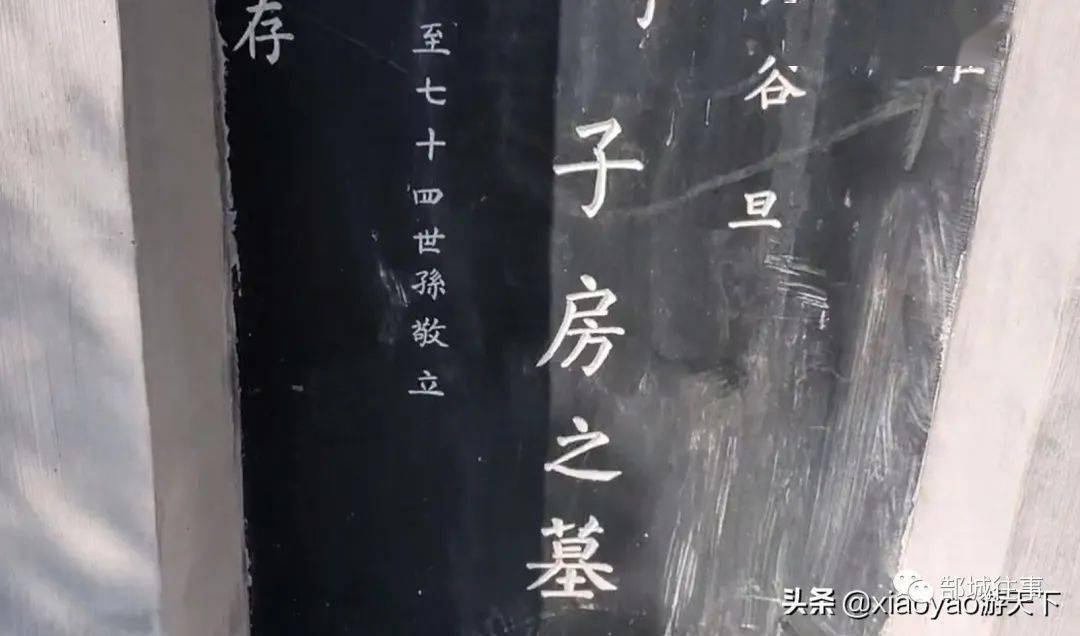 谷旦
子房之墓
至七十四世孫敬立
存
郜城往事
头条 @xiaoyao游天下